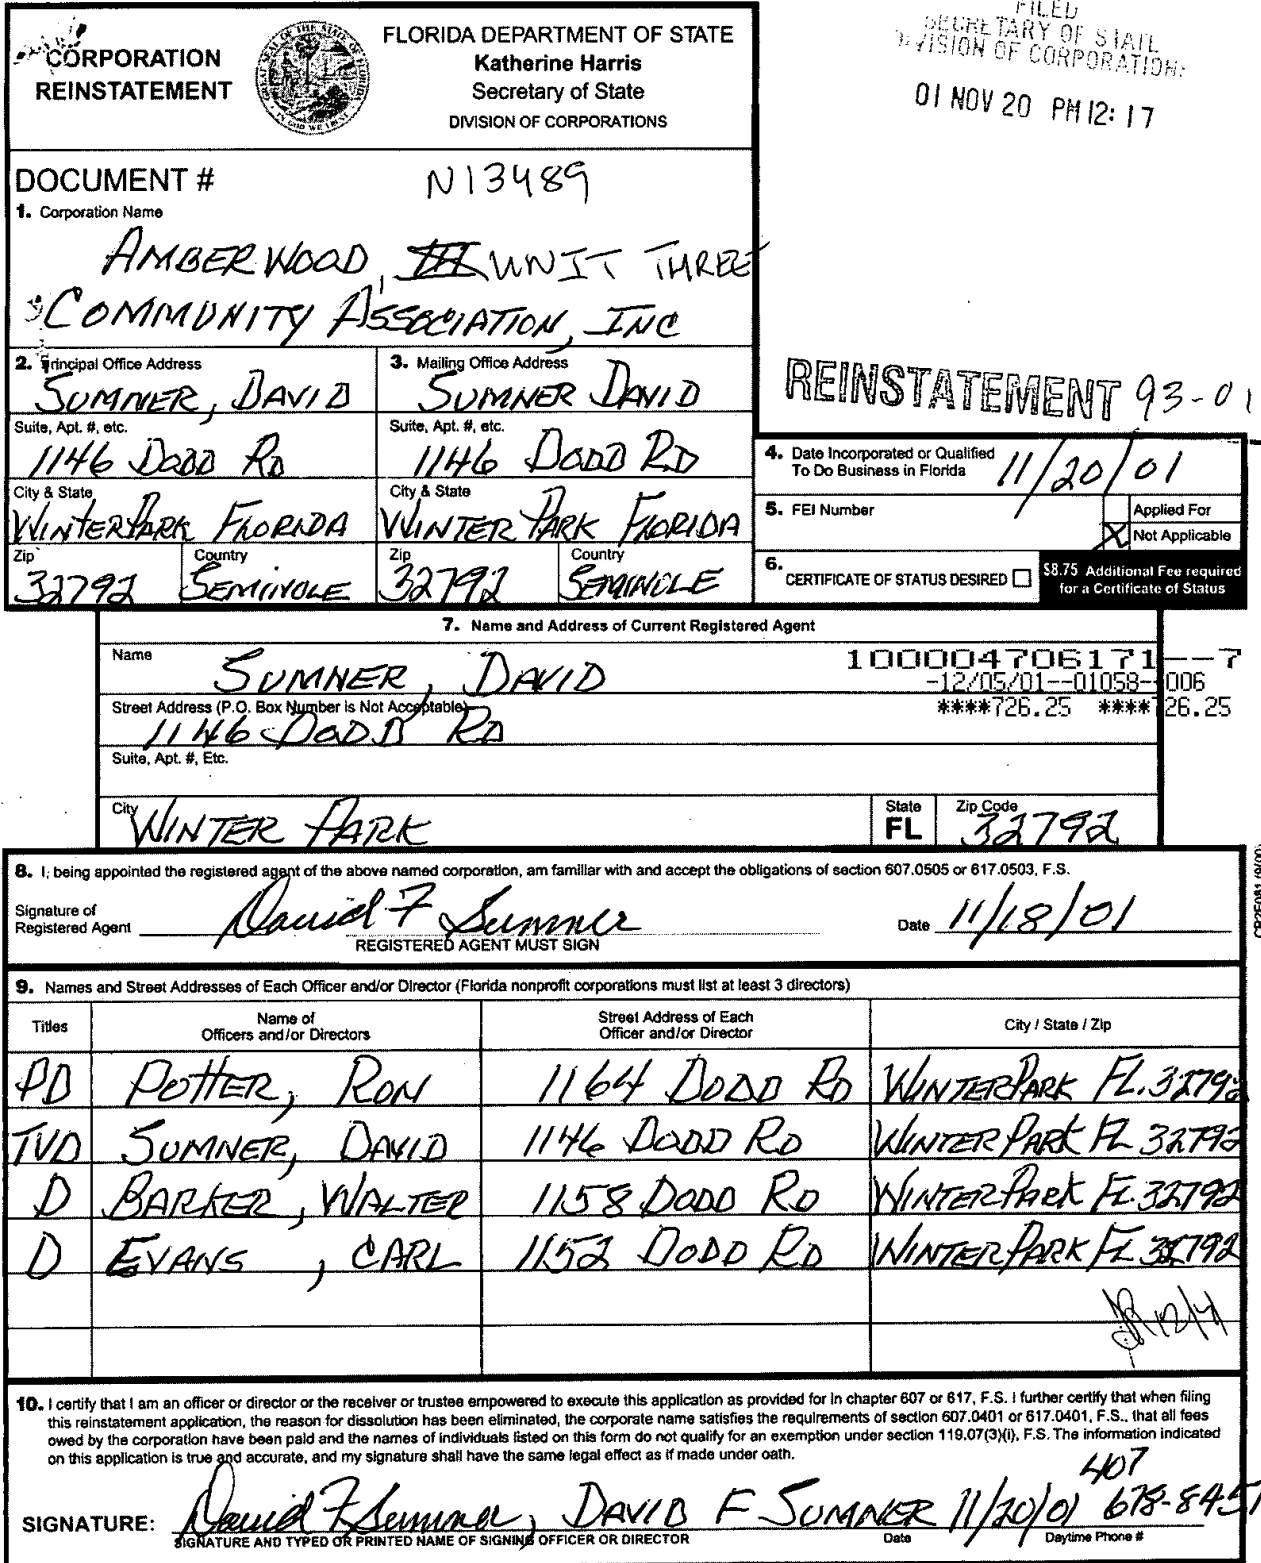 FILED
SECRETARY OF STATE
DIVISION OF CORPORATIONS
01 NOV 20 PM 12:17
CORPORATION
REINSTATEMENT
FLORIDA DEPARTMENT OF STATE
Katherine Harris
Secretary of State
DIVISION OF CORPORATIONS
DOCUMENT # N13489
1. Corporation Name
AMBERWOOD, UNIT THREE
COMMUNITY ASSOCIATION, INC
REINSTATEMENT 93-01
2. Principal Office Address
SUMNER, DAVID
3. Mailing Office Address
SUMNER DAVID
Suite, Apt. #, etc.
1146 DODD RD
Suite, Apt. #, etc.
1146 DODD RD
City & State
WINTER PARK FLORIDA
City & State
WINTER PARK FLORIDA
Zip
32792
Country
SEMINOLE
Zip
32792
Country
SEMINOLE
4. Date Incorporated or Qualified
To Do Business in Florida
11/20/01
5. FEI Number
Applied For
X Not Applicable
6. CERTIFICATE OF STATUS DESIRED
$8.75 Additional Fee required
for a Certificate of Status
7. Name and Address of Current Registered Agent
Name
SUMNER, DAVID
100004706171--7
-12/05/01--01058--006
****726.25 ****726.25
Street Address (P.O. Box Number is Not Acceptable)
1146 DODD RD
Suite, Apt. #, Etc.
City
WINTER PARK
State
FL
Zip Code
32792
8. I, being appointed the registered agent of the above named corporation, am familiar with and accept the obligations of section 607.0505 or 617.0503, F.S.
Signature of
Registered Agent
David F Sumner
REGISTERED AGENT MUST SIGN
Date 11/18/01
CR2E081 (9/00)
9. Names and Street Addresses of Each Officer and/or Director (Florida nonprofit corporations must list at least 3 directors)
Titles
Name of
Officers and/or Directors
Street Address of Each
Officer and/or Director
City / State / Zip
PD POTTER, RON 1164 DODD RD WINTER PARK FL. 32792
TVD SUMNER, DAVID 1146 DODD RD WINTER PARK FL 32792
D BARKER, WALTER 1158 DODD RD WINTER PARK FL. 32792
D EVANS, CARL 1152 DODD RD WINTER PARK FL 32792
10. I certify that I am an officer or director or the receiver or trustee empowered to execute this application as provided for in chapter 607 or 617, F.S. I further certify that when filing
this reinstatement application, the reason for dissolution has been eliminated, the corporate name satisfies the requirements of section 607.0401 or 617.0401, F.S., that all fees
owed by the corporation have been paid and the names of individuals listed on this form do not qualify for an exemption under section 119.07(3)(i), F.S. The information indicated
on this application is true and accurate, and my signature shall have the same legal effect as if made under oath.
SIGNATURE: David F Sumner, DAVID F SUMNER 11/20/01 407 678-8451
SIGNATURE AND TYPED OR PRINTED NAME OF SIGNING OFFICER OR DIRECTOR
Date
Daytime Phone #